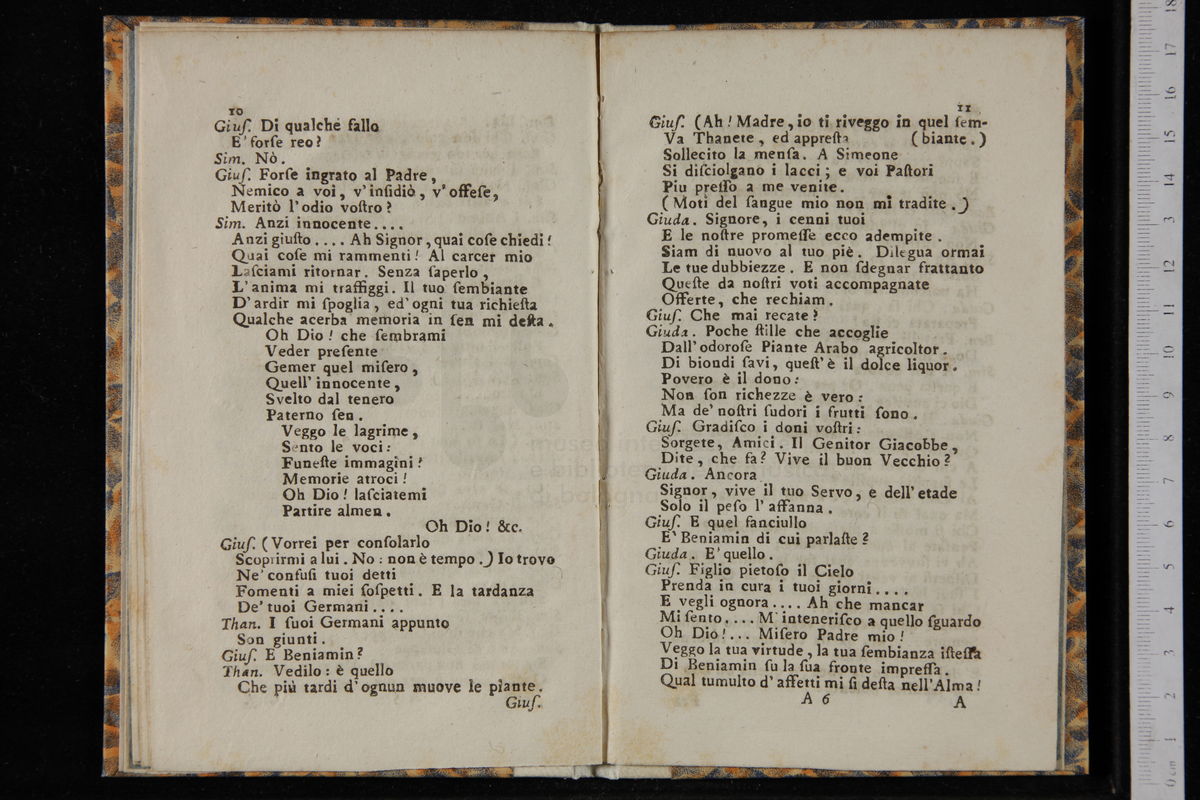 10
Giuſ. Di qualche fallo
E' forſe reo?
Sim. Nò.
Giuſ. Forſe ingrato al Padre,
Nemico a voi, v'inſidiò, v'offeſe,
Meritò l'odio voſtro?
Sim. Anzi innocente....
Anzi giuſto.... Ah Signor, quai coſe chiedi!
Quai coſe mi rammenti! Al carcer mio
Laſciami ritornar. Senza ſaperlo,
L'anima mi traffiggi. Il tuo ſembiante
D'ardir mi ſpoglia, ed'ogni tua richieſta
Qualche acerba memoria in ſen mi deſta.
Oh Dio! che ſembrami
Veder preſente
Gemer quel miſero,
Quell'innocente,
Svelto dal tenero
Paterno ſen.
Veggo le lagrime,
Sento le voci:
Funeſte immagini!
Memorie atroci!
Oh Dio! laſciatemi
Partire almen.
Oh Dio! &c.
Giuſ. (Vorrei per conſolarlo
Scoprirmi a lui. No: non è tempo.) Io trovo
Ne' confuſi tuoi detti
Fomenti a miei ſoſpetti. E la tardanza
De' tuoi Germani....
Than. I ſuoi Germani appunto
Son giunti.
Giuſ. E Beniamin?
Than. Vedilo: è quello
Che più tardi d'ognun muove le piante.
Giuſ.
11
Giuſ. (Ah! Madre, io ti riveggo in quel ſem-
Va Thanete, ed appreſta (biante.)
Sollecito la menſa. A Simeone
Si diſciolgano i lacci; e voi Paſtori
Piu preſſo a me venite.
(Moti del ſangue mio non mi tradite.)
Giuda. Signore, i cenni tuoi
E le noſtre promeſſe ecco adempite.
Siam di nuovo al tuo piè. Dilegua ormai
Le tue dubbiezze. E non ſdegnar frattanto
Queſte da noſtri voti accompagnate
Offerte, che rechiam.
Giuſ. Che mai recate?
Giuda. Poche ſtille che accoglie
Dall'odoroſe Piante Arabo agricoltor.
Di biondi favi, queſt'è il dolce liquor.
Povero è il dono:
Non ſon richezze è vero:
Ma de' noſtri ſudori i frutti ſono.
Giuſ. Gradiſco i doni voſtri:
Sorgete, Amici. Il Genitor Giacobbe,
Dite, che fa? Vive il buon Vecchio?
Giuda. Ancora
Signor, vive il tuo Servo, e dell'etade
Solo il peſo l'affanna.
Giuſ. E quel fanciullo
E' Beniamin di cui parlaſte?
Giuda. E' quello.
Giuſ. Figlio pietoſo il Cielo
Prenda in cura i tuoi giorni....
E vegli ognora.... Ah che mancar
Mi ſento.... M'inteneriſco a quello ſguardo
Oh Dio!... Miſero Padre mio!
Veggo la tua virtude, la tua ſembianza iſteſſa
Di Beniamin ſu la ſua fronte impreſſa.
Qual tumulto d'affetti mi ſi deſta nell'Alma!
A 6 A